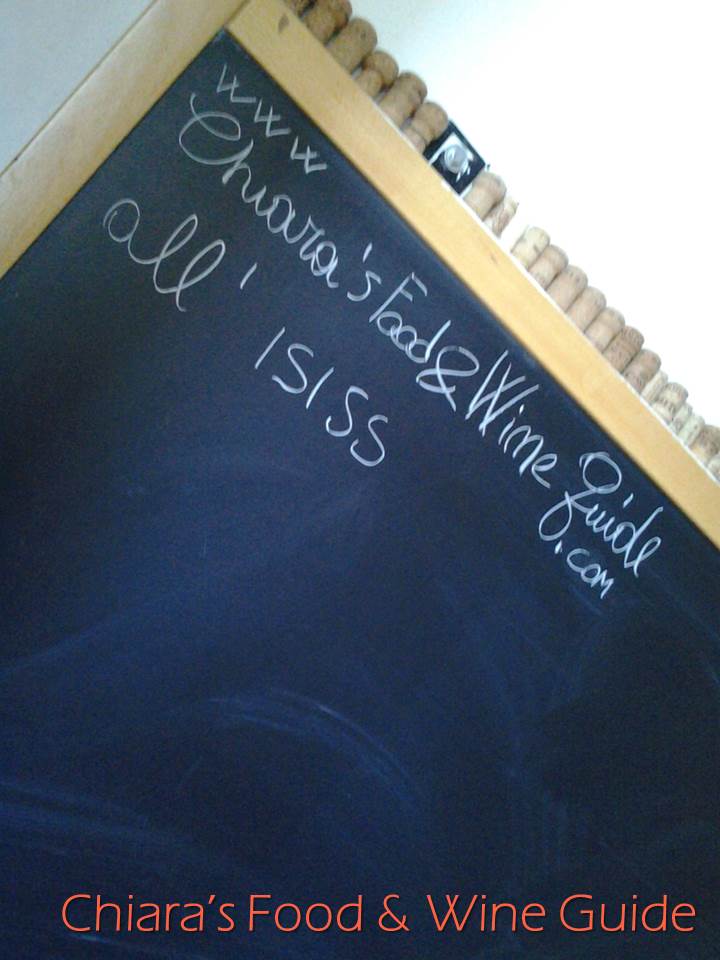 www
Chiara's Food & Wine Guide
.com
all' ISISS
Chiara's Food & Wine Guide